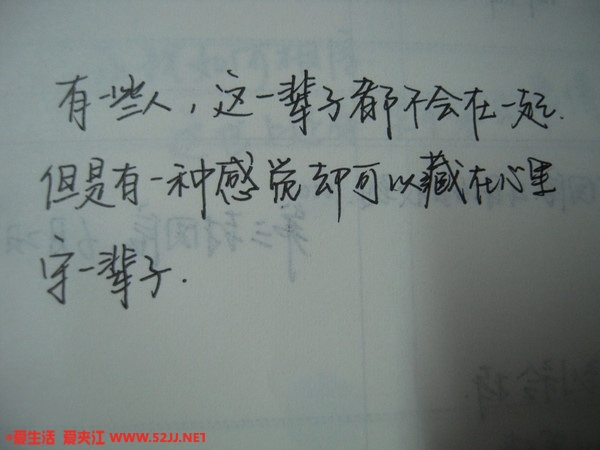 有一些人，这一辈子都不会在一起.
但是有一种感觉却可以藏在心里
守一辈子.
爱生活 爱夹江 WWW.52JJ.NET